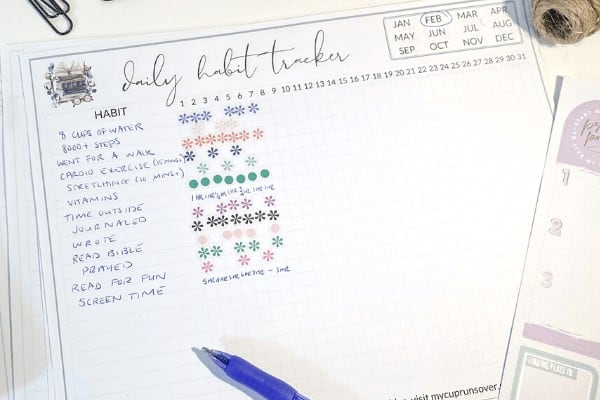 daily habit tracker
JAN FEB MAR APR
MAY JUN JUL AUG
SEP OCT NOV DEC
HABIT
1 2 3 4 5 6 7 8 9 10 11 12 13 14 15 16 17 18 19 20 21 22 23 24 25 26 27 28 29 30 31
8 CUPS OF WATER
8000+ STEPS
WENT FOR A WALK
CARDIO EXERCISE (15 MINS+)
STRETCHING (10 MINS+)
VITAMINS
TIME OUTSIDE
JOURNALED
WROTE
READ BIBLE
PRAYED
READ FOR FUN
SCREEN TIME
visit mycuprunsover.
1
2
3